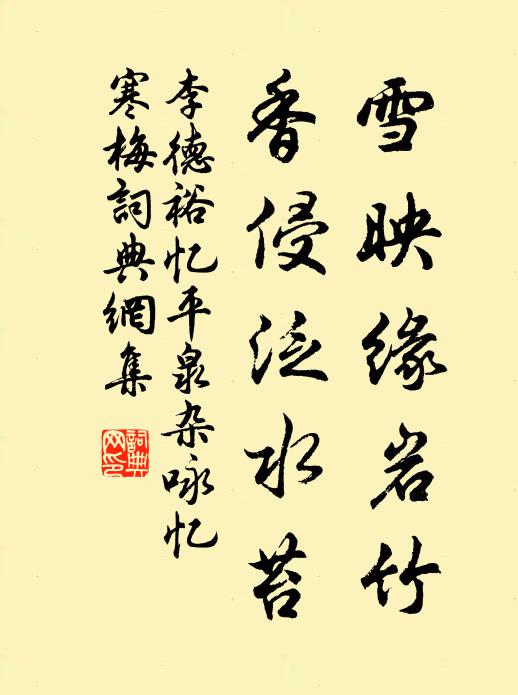 雪映缘岩竹
香侵泛水苔
李德裕忆平泉杂咏忆
寒梅词典網集
詞典网印